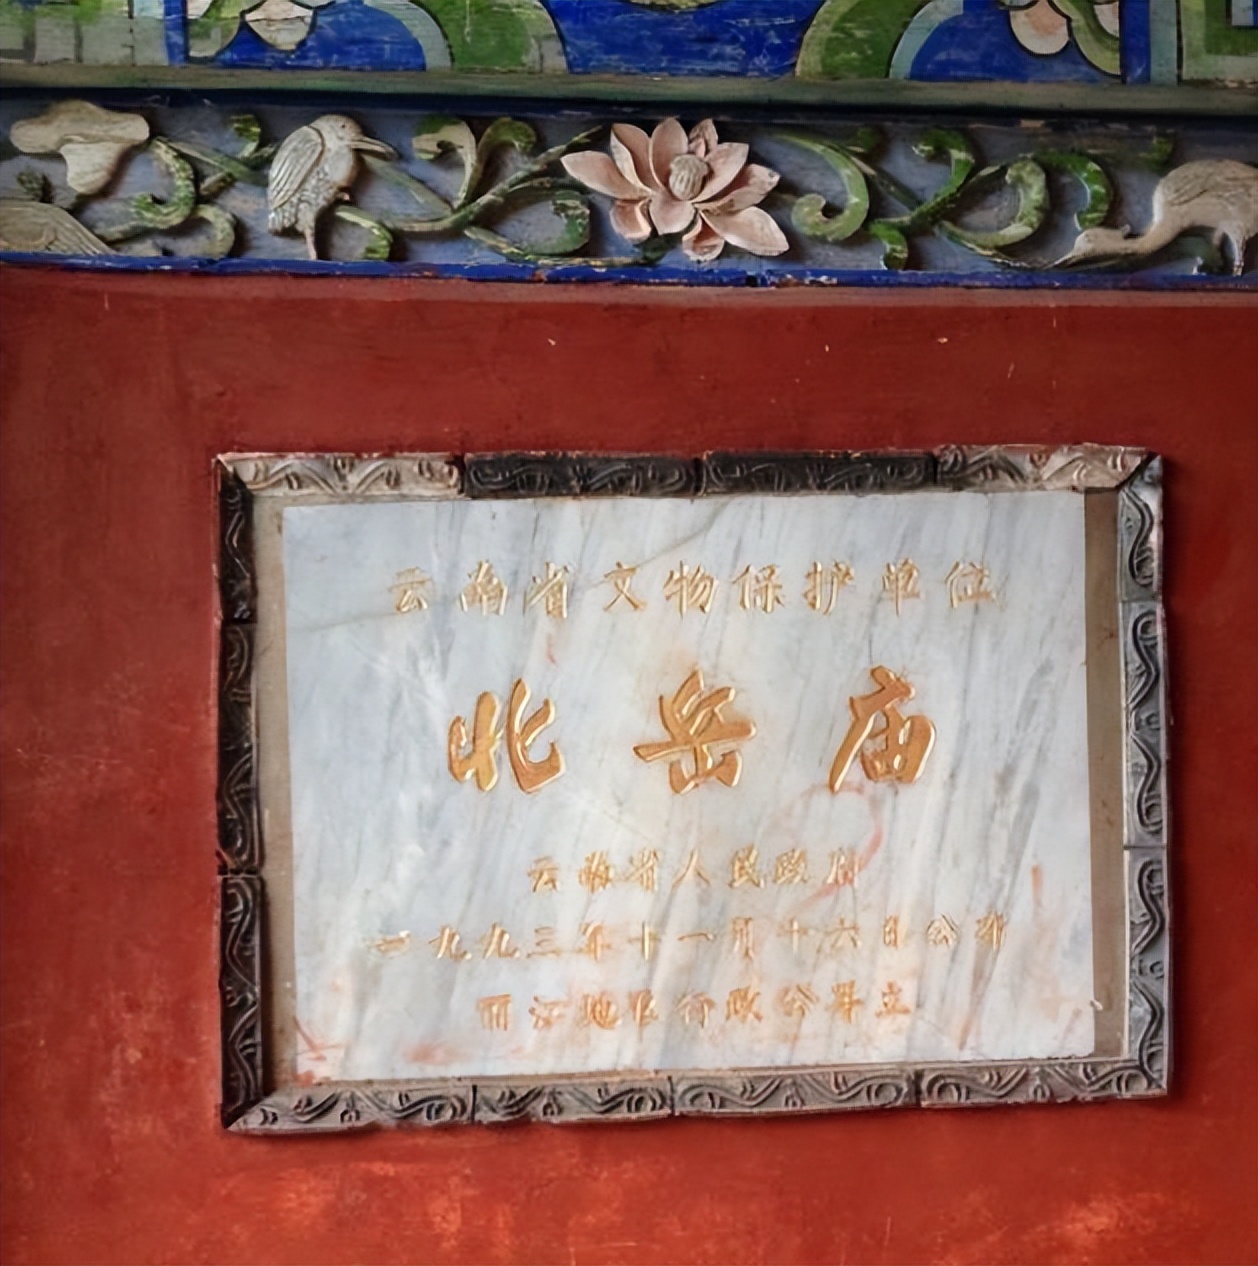 云南省文物保护单位
北岳庙
云南省人民政府
一九九三年十一月十六日公布
丽江地区行政公署立